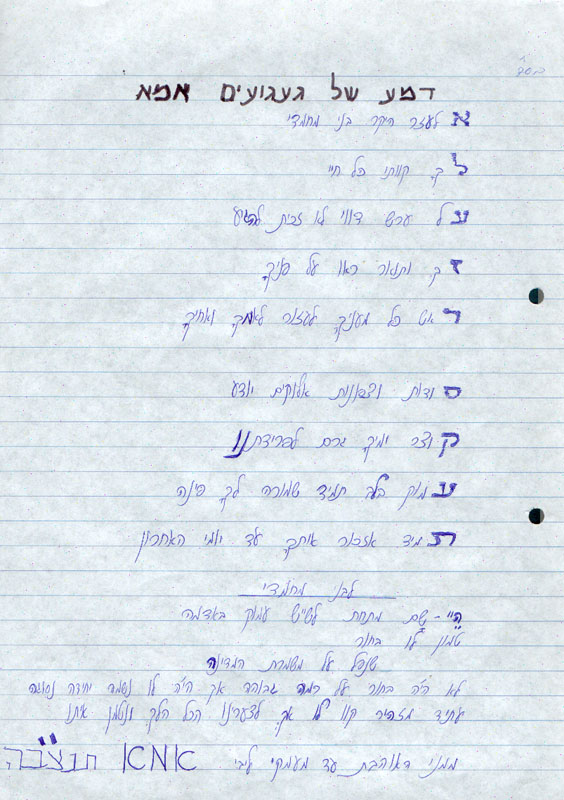 בסד
דמע של געגועים אמא
אלעזר היקר בני מחמדי
לך קוותי כל חיי
על ערש דווי לא זכית להגיע
זך ותואר ראו על פניך
ראש כל מעניך לעזור לאמך ואחיך
סודות וצפונות אלוקים יודע
קוצר ימיך גרם לפרידתנו
עמוק בלב תמיד שמורה לך פינה
תמיד אזכור אותך עד יומי האחרון
לבן מחמדי
היי - שם מתחת לשייש עמוק באדמה
טמון לו בחור
שנפל על משמרת המדינה
לא היה בחור על רמה גבוהה אך היה לו נשמה יחידה
עתיד מזהיר קוו לו אך לצערינו הכל הלך ונטמן איתו
ממני האוהבת עד מעמקי ליבי אמא תנצבה